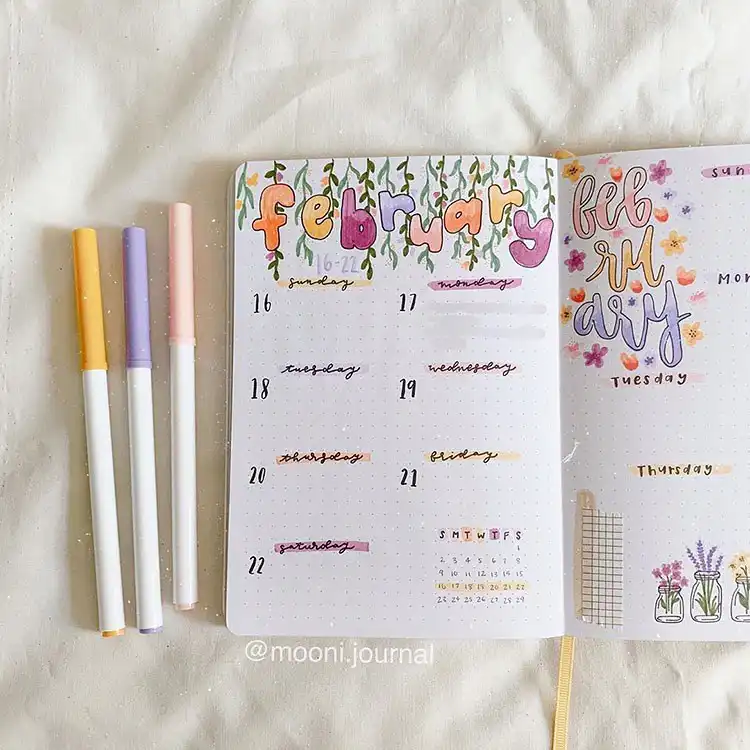 february
16-22
16 sunday
17 monday
18 tuesday
19 wednesday
20 thursday
21 friday
22 saturday
S M T W T F S
1
2 3 4 5 6 7 8
9 10 11 12 13 14 15
16 17 18 19 20 21 22
23 24 25 26 27 28 29
feb
ru
ary
sun
Mon
Tuesday
Thursday
@mooni.journal